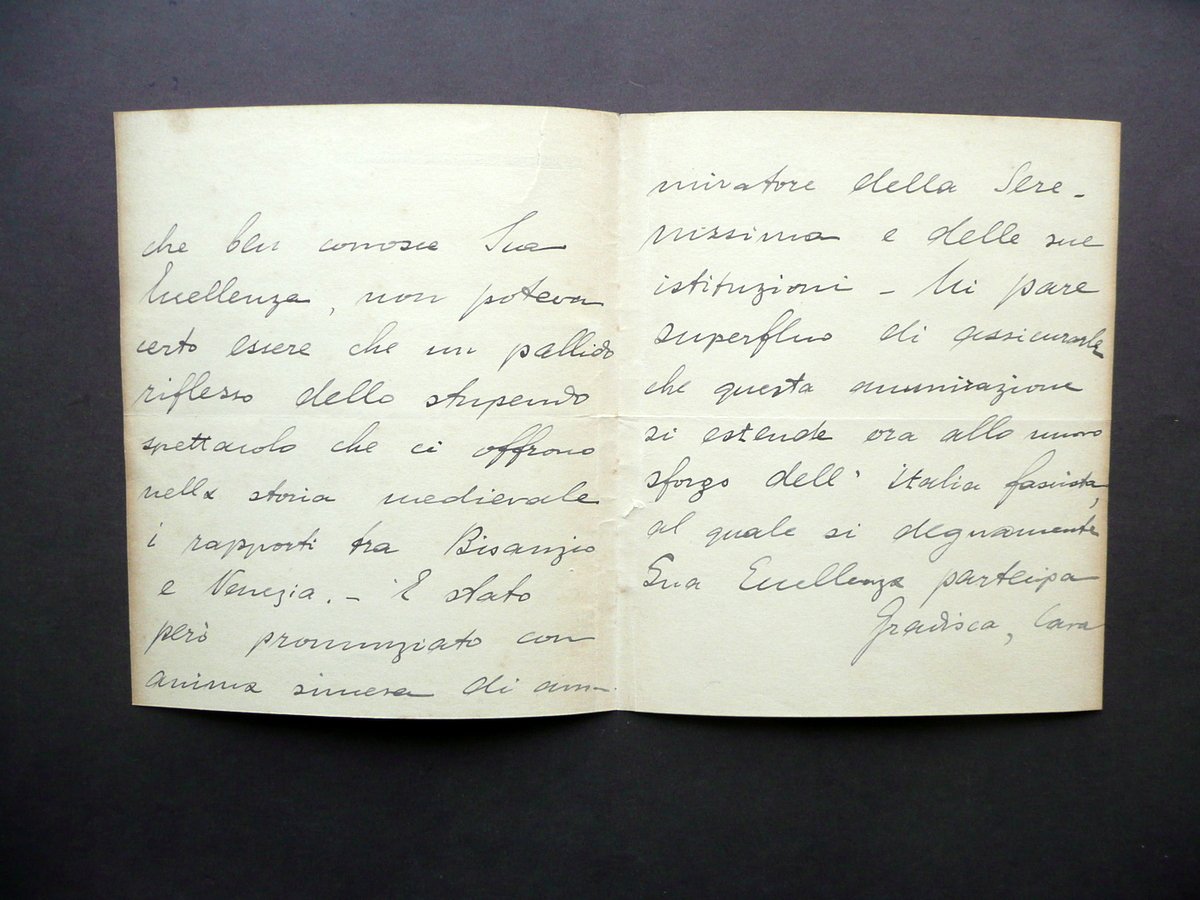 che ben conosce Sua
Eccellenza, non poteva
certo essere che un pallido
riflesso dello stupendo
spettacolo che ci offrono
nella storia medievale
i rapporti tra Bisanzio
e Venezia. - È stato
però pronunziato con
anima sincera di am-
miratore della Sere-
nissima e delle sue
istituzioni - Mi pare
superfluo di assicurarle
che questa ammirazione
si estende ora allo nuovo
sforzo dell' Italia fascista,
al quale si degnamente
Sua Eccellenza partecipa
Gradisca, Cara